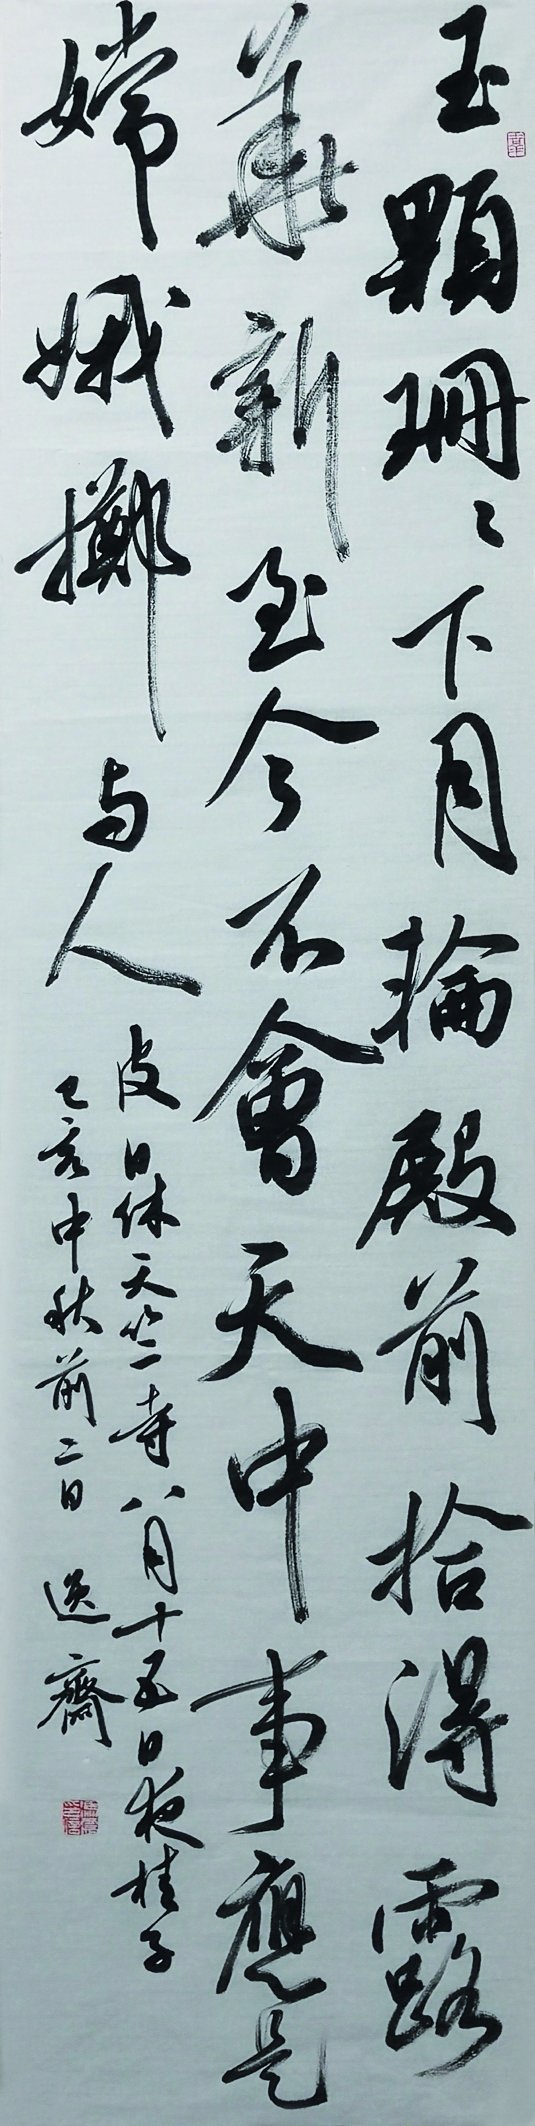 玉顆珊々下月輪殿前拾得露
華新至今不會天中事應是
嫦娥擲与人
皮日休天竺寺八月十五日夜桂子
乙亥中秋前二日 逸齋